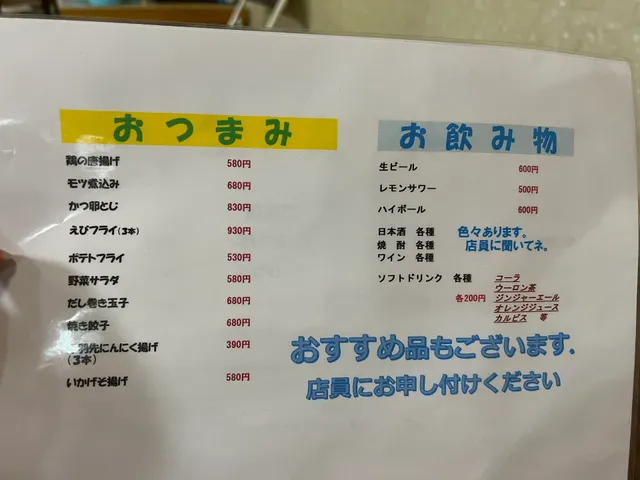 おつまみ
鶏の唐揚げ 580円
モツ煮込み 680円
かつ卵とじ 830円
えびフライ(3本) 930円
ポテトフライ 530円
野菜サラダ 580円
だし巻き玉子 680円
焼き餃子 680円
羽先にんにく揚げ 390円
(3本)
いかげそ揚げ 580円
お飲み物
生ビール 600円
レモンサワー 500円
ハイボール 600円
日本酒 各種 色々あります。
焼 酎 各種 店員に聞いてネ。
ワイン 各種
ソフトドリンク 各種 コーラ
ウーロン茶
各200円 ジンジャーエール
オレンジジュース
カルピス 等
おすすめ品もございます.
店員にお申し付けください